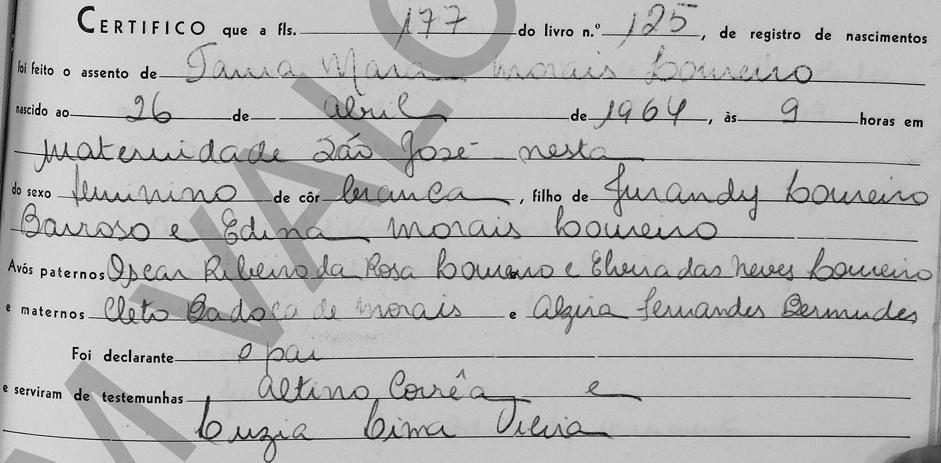 CERTIFICO que a fls. 177 do livro n.º 125, de registro de nascimentos
foi feito o assento de Tania Mara morais Loureiro
nascido ao 26 de abril de 1964, às 9 horas em
maternidade São José nesta
do sexo feminino de côr branca, filho de Jurandy Loureiro
Barroso e Edina morais Loureiro
Avós paternos Oscar Ribeiro da Rosa Loureiro e das neves Loureiro
e maternos Cleto de morais e Alzira Fernandes Bermudes
Foi declarante o pai
e serviram de testemunhas Altino Corrêa e
Luzia Lima Vieira
M VALO